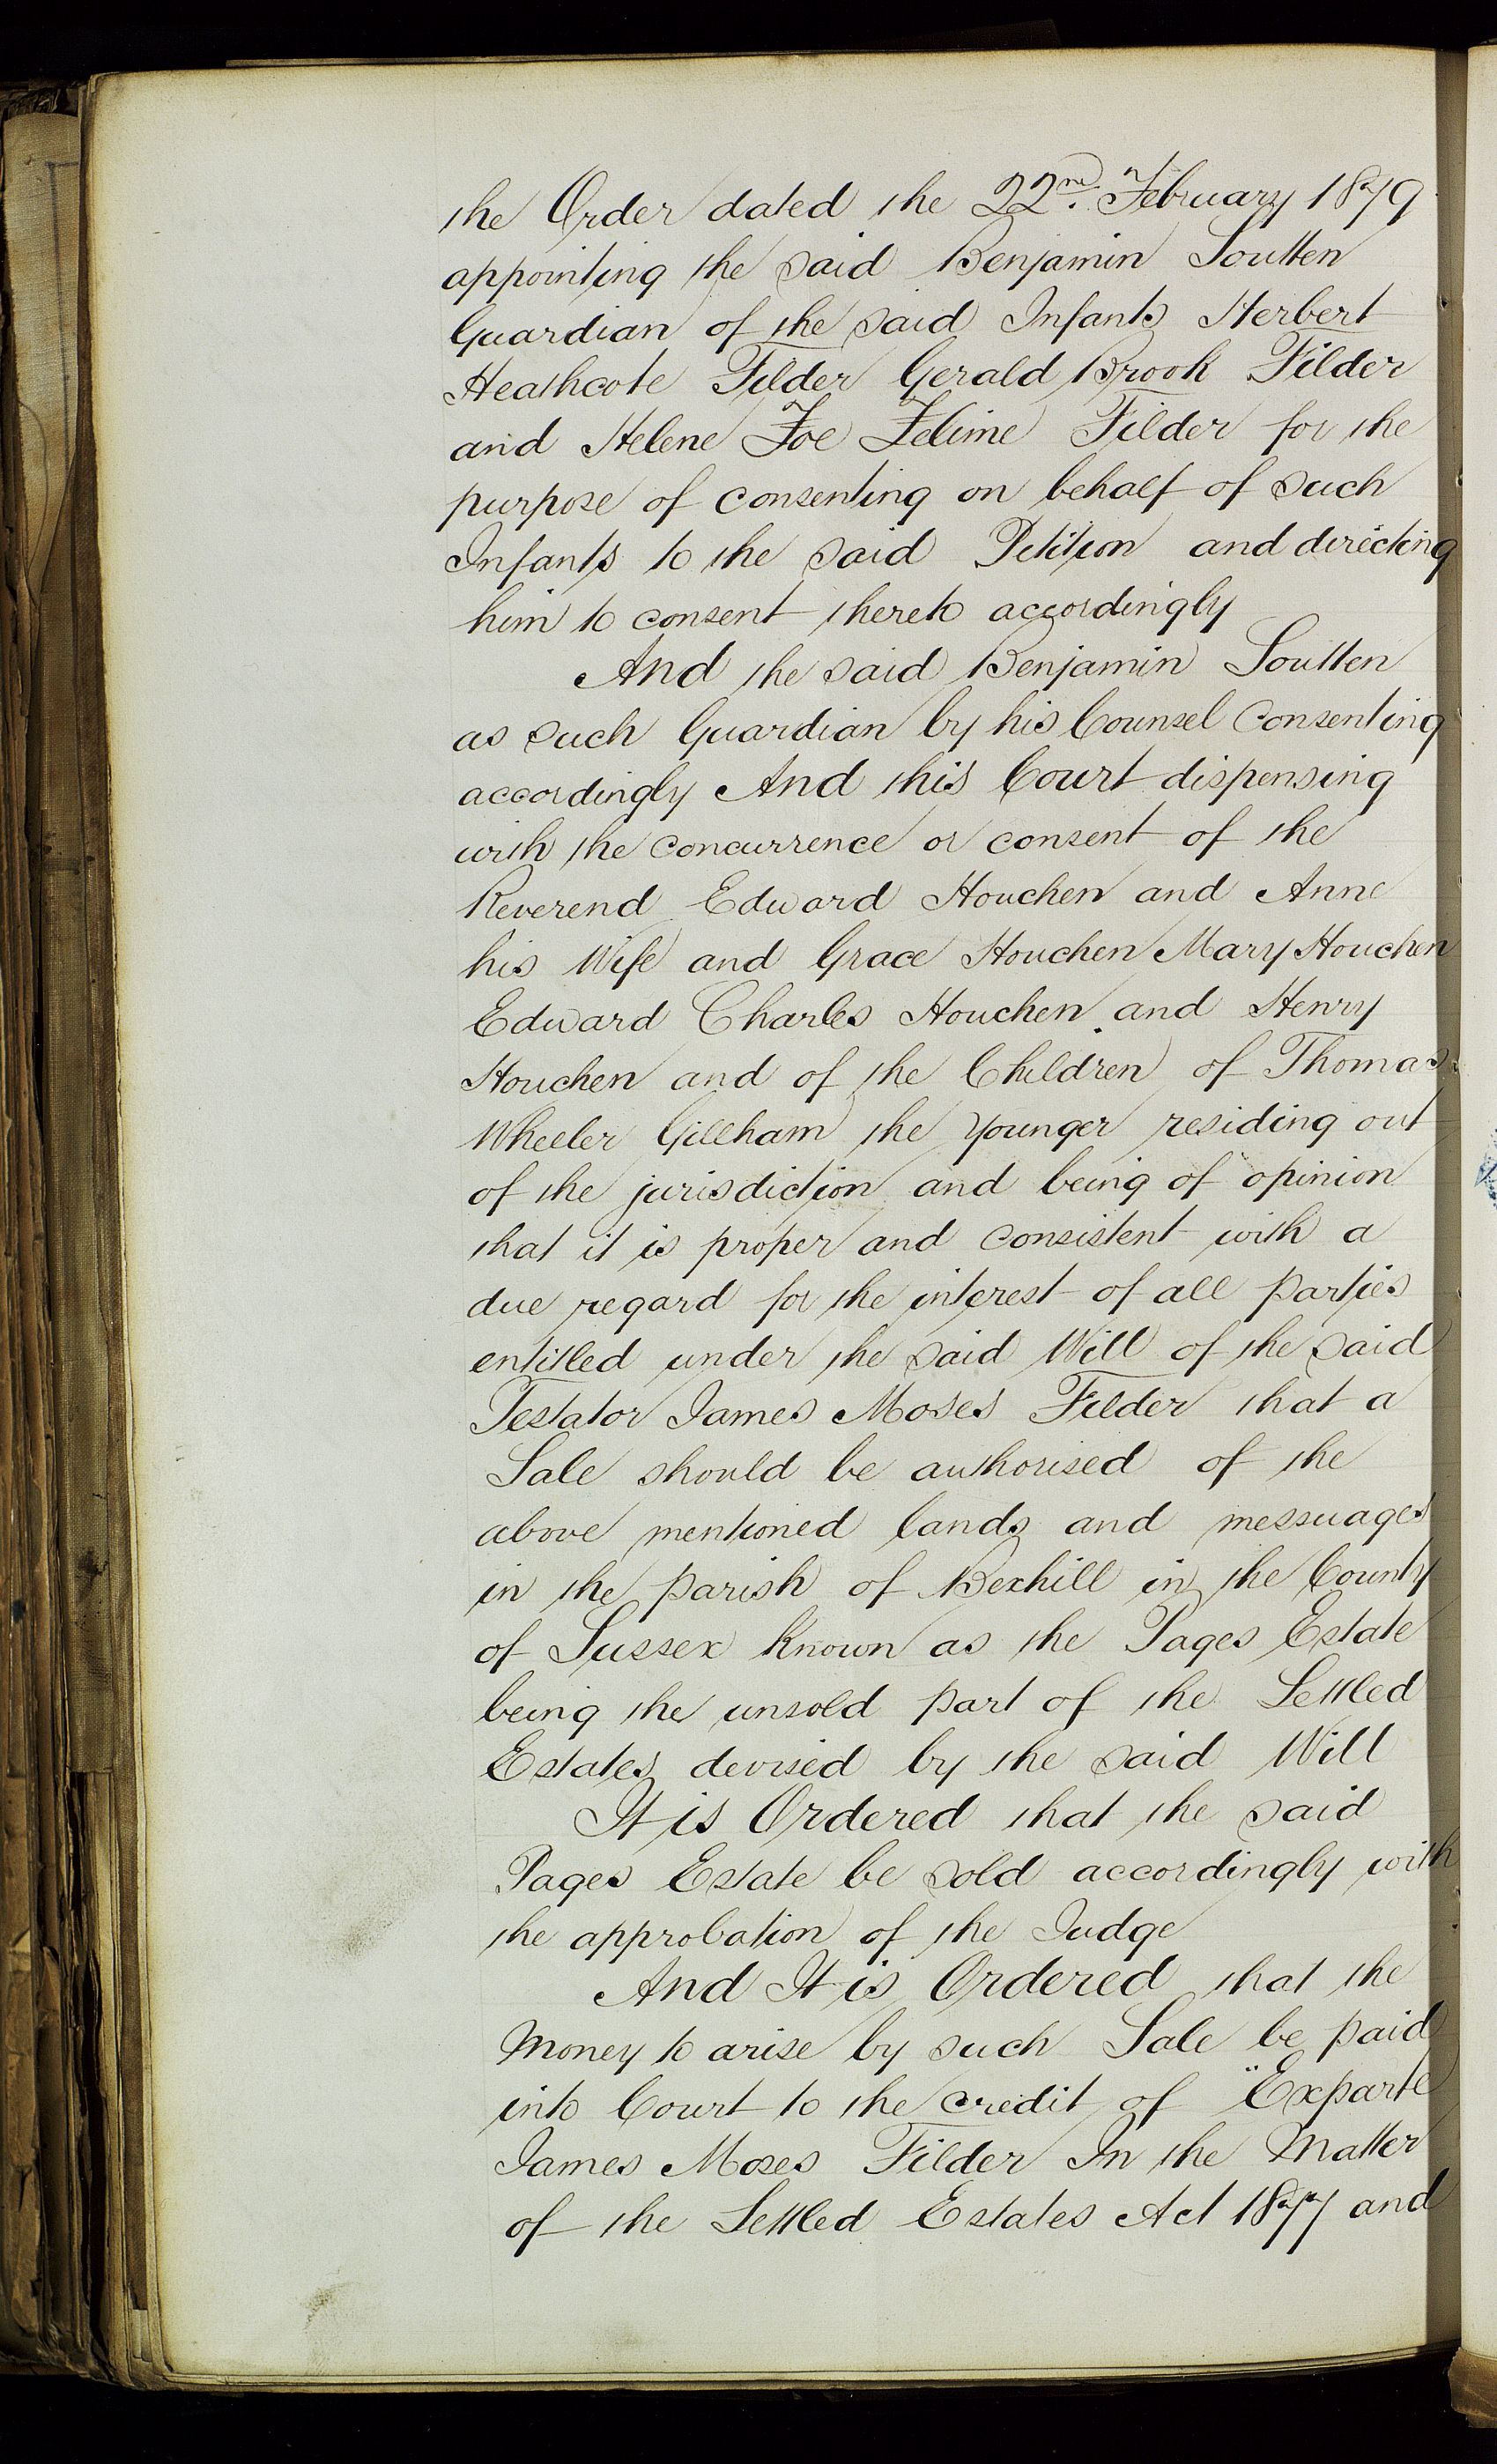 the Order dated the 22nd. February 1879
appointing the said Benjamin Soutten
Guardian of the said Infants Herbert
Heathcote Filder Gerald Brook Filder
and Helene Zoe Zelime Filder for the
purpose of consenting on behalf of such
Infants to the said Petition and directing
him to consent thereto accordingly
And the said Benjamin Soutten
as such Guardian by his Counsel Consenting
accordingly And this Court dispensing
with the concurrence or consent of the
Reverend Edward Houchen and Anne
his Wife and Grace Houchen Mary Houchen
Edward Charles Houchen and Henry
Houchen and of the Children of Thomas
Wheeler Gillham the Younger residing out
of the jurisdiction and being of opinion
that it is proper and consistent with a
due regard for the interest of all parties
entitled under the said Will of the said
Testator James Moses Filder that a
Sale should be authorised of the
above mentioned lands and messuages
in the parish of Bexhill in the County
of Sussex known as the Pages Estate
being the unsold part of the Settled
Estates devised by the said Will
It is Ordered that the said
Pages Estate be sold accordingly with
the approbation of the Judge
And It is Ordered that the
Money to arise by such Sale be paid
into Court to the credit of "Exparte
James Moses Filder In the Matter
of the Settled Estates Act 1877 and